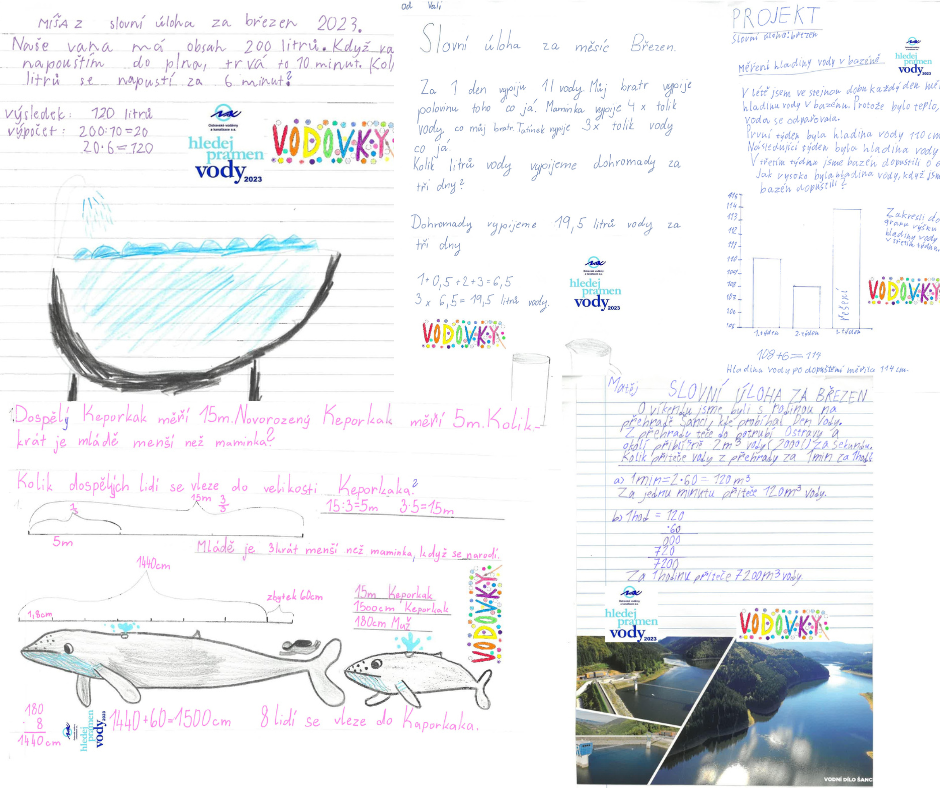 MÍŠA Z slovní úloha za březen 2023.
Naše vana má obsah 200 litrů. Když va
napouštím do plna, trvá to 10 minut. Kol
litrů se napustí za 6 minut?
výsledek: 120 litrů
výpočet: 200:10=20
20·6=120
Ostravské vodárny
a kanalizace a.s.
hledej
pramen
vody2023
VODOVKY
od Vali
Slovní úloha za měsíc Březen.
Za 1 den vypiju 1l vody Můj bratr vypije
polovinu toho co já. Maminka vypije 4x tolik
vody, co můj bratr. Tatínek vypije 3x tolik vody
co já.
Kolik litrů vody vypijeme dohromady za
tři dny?
Dohromady vypijeme 19,5 litrů vody za
tři dny
1+0,5+2+3=6,5
3 x 6,5=19,5 litrů vody.
hledej
pramen
vody2023
VODOVKY
PROJEKT
Slovní úloha: březen
Měření hladiny vody v bazéně
V létě jsme ve stejnou dobu každý den měř
hladinu vody v bazénu. Protože bylo teplo,
voda se odpařovala.
První týden byla hladina vody 110 cm
Následující týden byla hladina vody
V třetím týdnu jsme bazén dopustili o 6
Jak vysoko byla hladina vody, když jsme
bazén dopustili?
hledej
pramen
vody2023
114
113
112
111
110
1.týden
2.týden
3.týden
ŘEŠENÍ
Zakresli do
grafu výšku
hladiny vody
v třetím týdnu
VODOVKY
108+6=114
Hladina vody po dopuštění měřila 114 cm
1. Dospělý Keporkak měří 15m. Novorozený Keporkak měří 5m. Kolik-
krát je mládě menší než maminka?
Kolik dospělých lidí se vleze do velikosti Keporkaka?
1.
15m
5m
15:3=5m 3·5=15m
Mládě je 3krát menší než maminka, když se narodí.
1440cm
zbytek 60cm
1,8cm
15m Keporkak
1500cm Keporkak
180cm Muž
VODOVKY
180
· 8
1440cm
hledej
pramen
vody2023
1440+60=1500cm
8 lidí se vleze do Kaporkaka.
Matěj
SLOVNÍ ÚLOHA ZA BŘEZEN
O víkendu jsme byli s rodinou na
přehradě Šance, kde probíhal Den vody.
Z přehrady teče do potrubí Ostravy a
okolí přibližně 2m³ vody (2000l) za sekundu.
Kolik přiteče vody z přehrady za 1min za 1hod?
a) 1min=2·60=120m³
Za jednu minutu přiteče 120m³ vody.
b) 1hod = 120
·60
000
720
7200
Za 1hodinu přiteče 7200m³ vody
hledej
pramen
vody2023
VODOVKY
VODNÍ DÍLO ŠANC